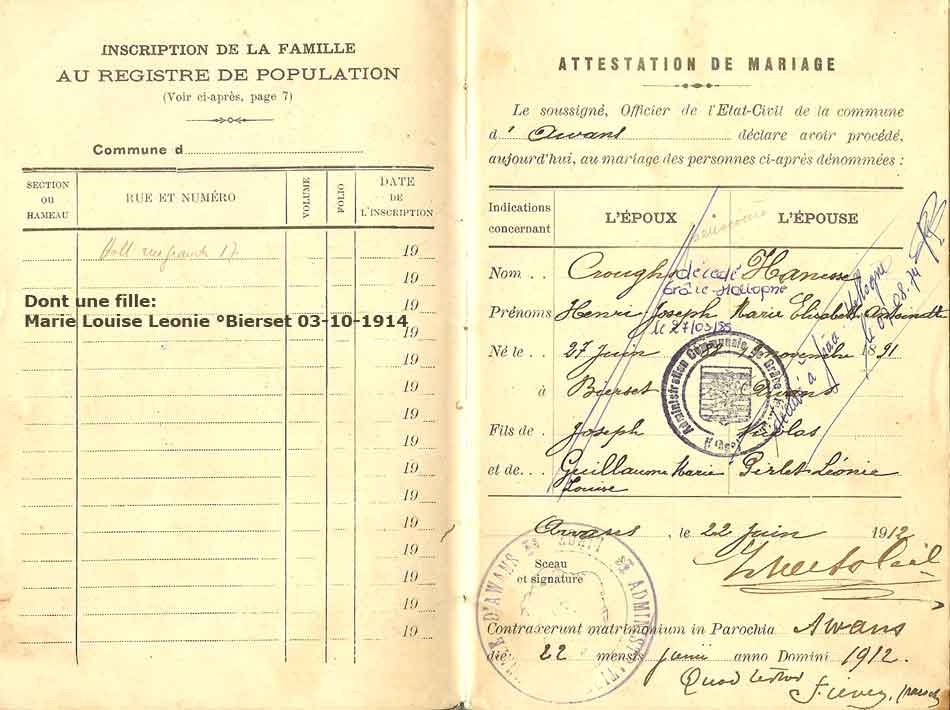 INSCRIPTION DE LA FAMILLE
AU REGISTRE DE POPULATION
(Voir ci-après, page 7)
Commune d
SECTION OU HAMEAU
RUE ET NUMÉRO
VOLUME
FOLIO
DATE DE L'INSCRIPTION
Holl 17
19
19
Dont une fille:
19
Marie Louise Leonie °Bierset 03-10-1914
19
19
19
19
19
19
19
19
19
19
19
19
ATTESTATION DE MARIAGE
Le soussigné, Officier de l'Etat-Civil de la commune
d' Awans déclare avoir procédé,
aujourd'hui, au mariage des personnes ci-après dénommées :
Indications concernant
L'ÉPOUX
L'ÉPOUSE
Nom . . Hanesse
décédé
Grâce-Hollogne
le 27/03/55
Prénoms Henri Joseph Marie Elisabeth Antoinette
Né le . . 27 Juin novembre 1891
à Bierset Awans
Fils de . Joseph Nicolas
et de . . . Guillaume Marie Louise Pirlet Léonie
Administration Communale de Grâce
(Liège)
Awans , le 22 Juin 1912
Sceau
et signature
D'AWANS ADMINIST
Contraxerunt matrimonium in Parochia Awans
die 22 mensis junii anno Domini 1912.
Quod testor